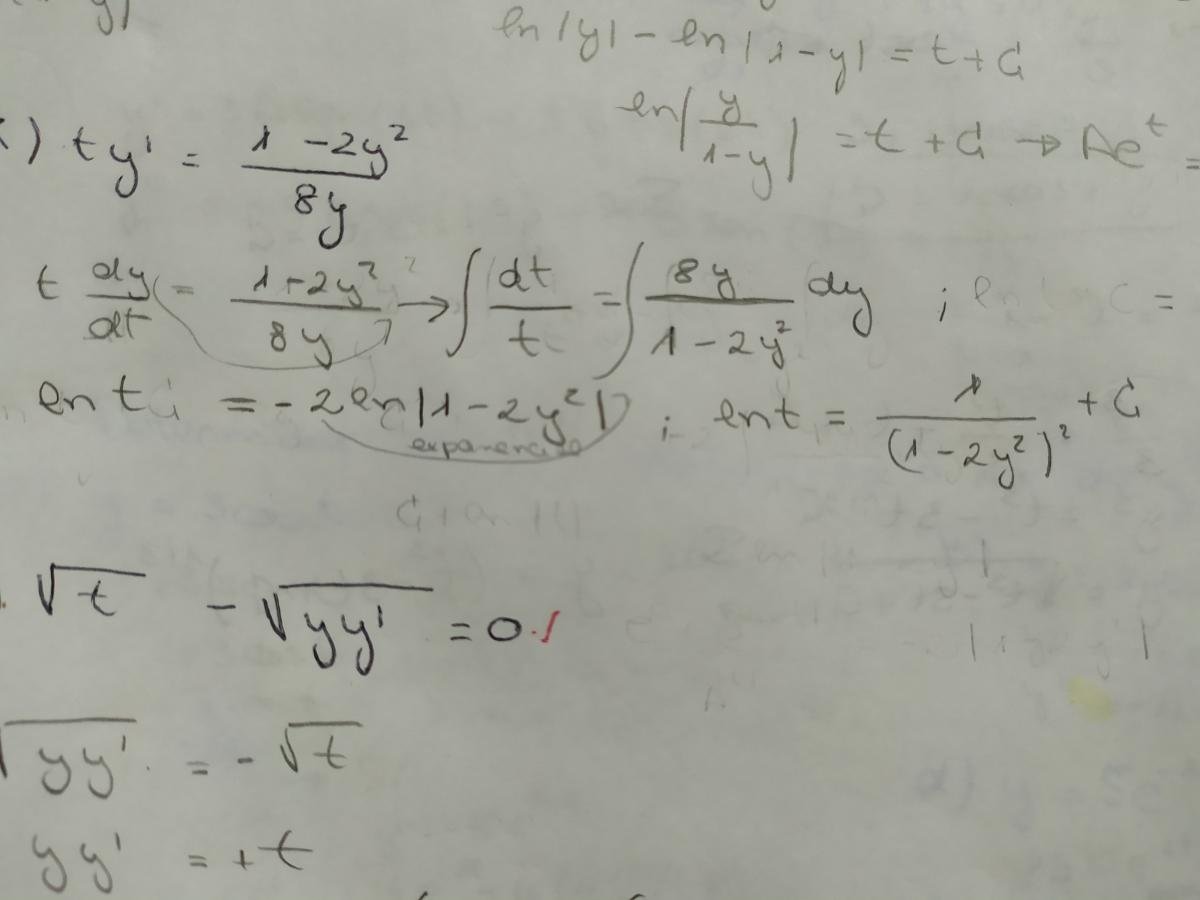 y)
ln |y| - ln |1-y| = t + C
ln| y/(1-y) | = t + C → Ae^t =
) t y' = (1 - 2y²)/(8y)
t dy/dt = (1+2y²)/(8y) → ∫ dt/t = ∫ 8y/(1-2y²) dy ; C =
ln t = -2 ln|1-2y²| ; ln t = 1/(1-2y²)² + C
√t - √(yy') = 0
√(yy') = - √t
yy' = + t